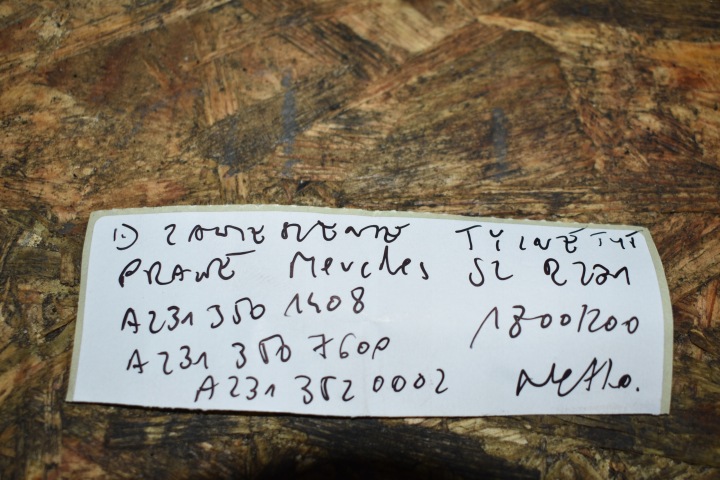 1.) ZAWIESZENIE TYLNE TYŁ
PRAWE Mercedes SL R231
A231 350 1408
1800/200
A231 350 7600
A231 352 0002 Netto.